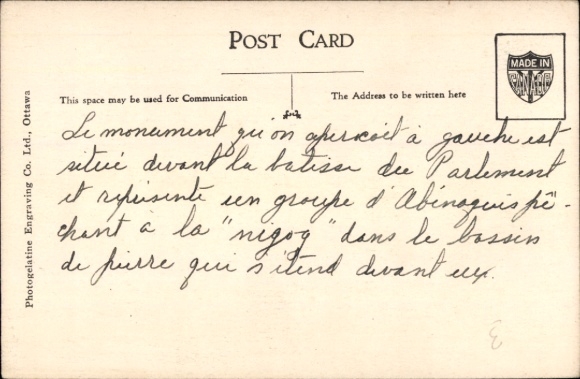 POST CARD
This space may be used for Communication
The Address to be written here
MADE IN
CANADA
Photogelatine Engraving Co. Ltd., Ottawa
Le monument qu'on aperçoit à gauche est
situé devant la batisse du Parlement
et représente un groupe d'Abénaquis pê-
chant à la "nigog" dans le bassin
de pierre qui s'étend devant eux.
E